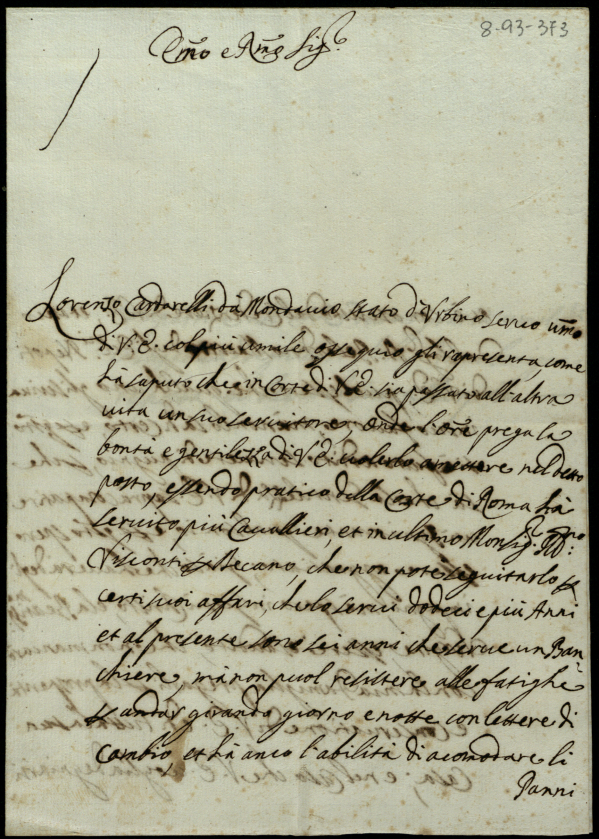 8-93-373
Em̃o e Rm̃o Sig.r
Lorenzo Cardarelli da Mondavio stato d'Urbino servo um̃o
di V. E. col più umile ossequio gli rapresenta, come
hà saputo che in Corte di V.E. sia passato all'altra
vita un suo servitore, onde l'Ore prega la
bontà e gentilezza di V. E. volerlo amettere nel detto
posto, essendo pratico della Corte di Roma hà
servito più Cavallieri, et in ultimo Monsig.r
Visconti Decano, che non pote seguitarlo p
certi suoi affari, che lo servì dodeci e più Anni
et al presente sono sei anni che serve un Ban
chiere, mà non puol resistere alle fatighe
p andar girando giorno e notte con lettere di
Cambio, et hà anco l'abilità di acomodare li
Panni